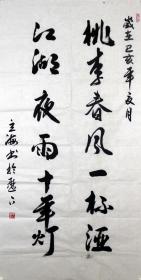 岁在己亥年文月
桃李春风一杯酒
江湖夜雨十年灯
主海书於